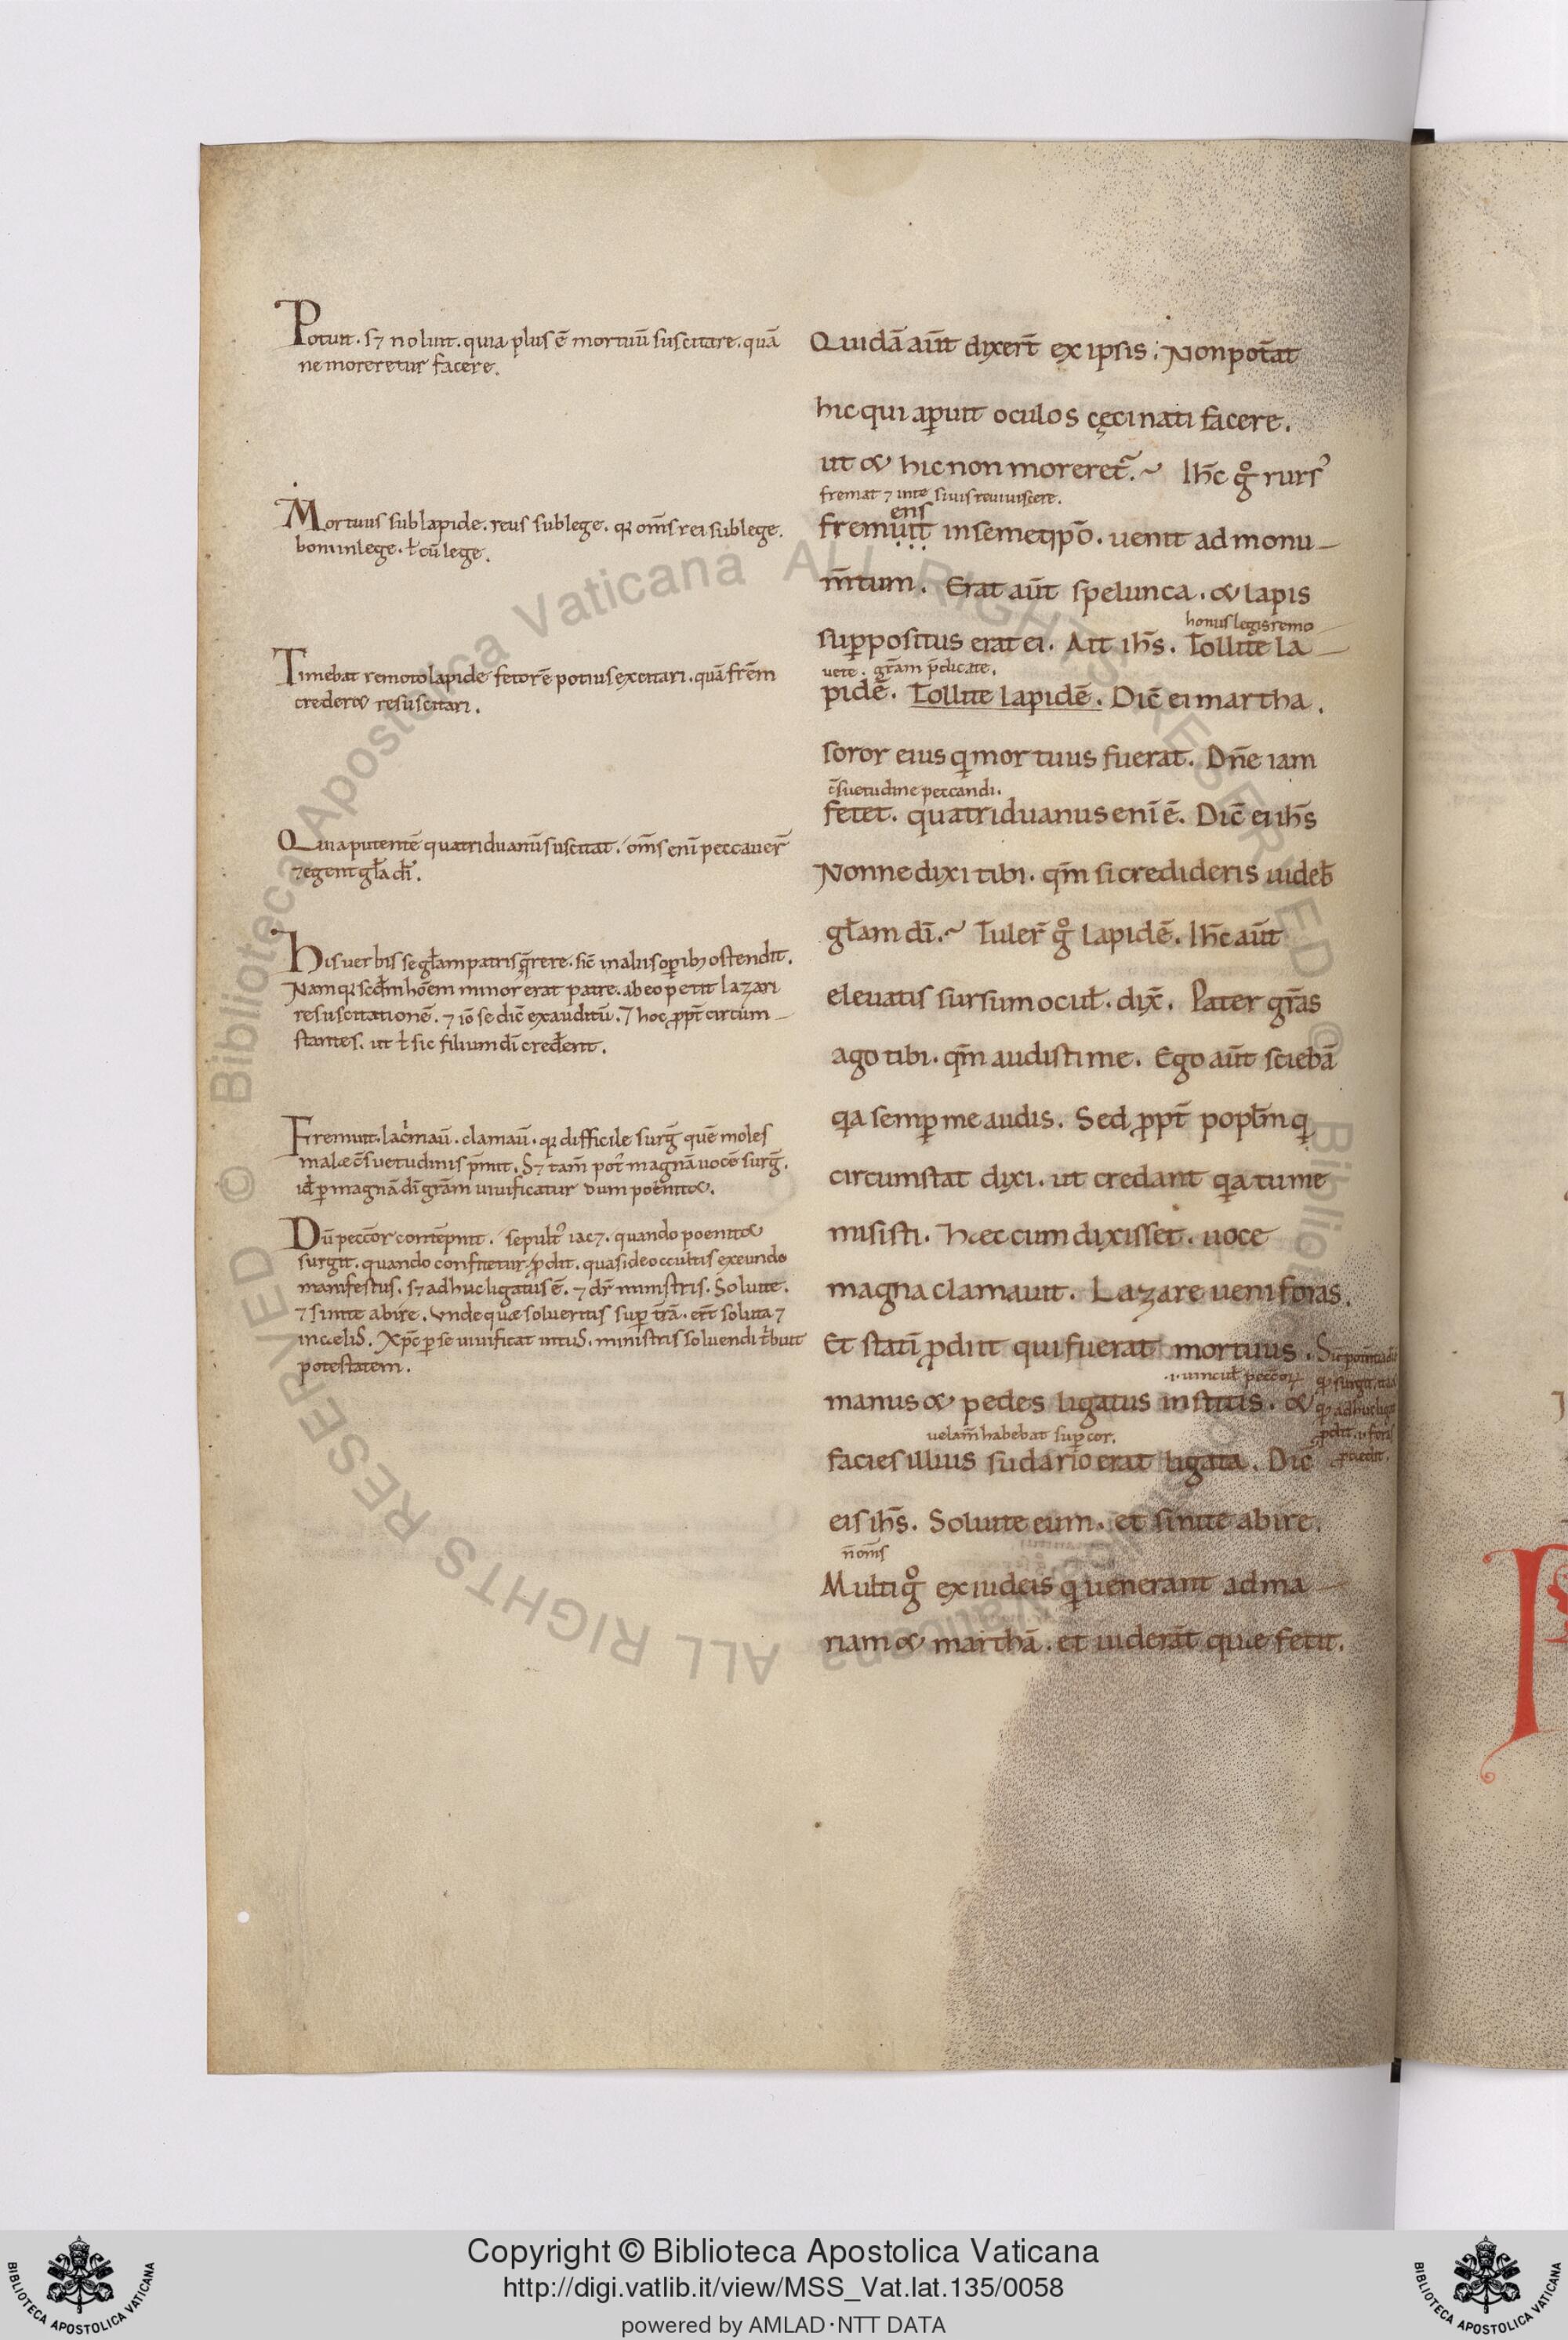 Potuit. s⁊ noluit. quia plus ē mortuū suscitare. quā
ne moreretur facere.
Mortuus sub lapide. reus sub lege. qꝛ om̄s rei sub lege.
boni in lege. ł cū lege.
Timebat remoto lapide fetorē potius excitari. quā fr̄em
crederet resuscitari.
Quia putentē quatriduanū suscitat. om̄s eni peccaueꝛ̄
⁊ egent gła dī.
His uerbis se głam patris q̄rere. sic̄ in aliis oꝑibꝫ ostendit.
Nam qꝛ scd̄m hoēm minor erat patre. ab eo petit lazari
resuscitationē. ⁊ iō se dic̄ exauditū. ⁊ hoc ꝓpt̄ circum-
stantes. ut ł sic filium dī credeꝛent.
Fremuit. lacͥmaū. clamaū. qꝛ difficile surḡ quē moles
malæ c̄suetudinis p̄mit. S⁊ tam̄ potͥ magnā uocē surḡ.
id̄ ꝑ magnā dī grām uiuificatur dum poenitet.
Dū pecc̄or contēpnit. sepultꝰ iac⁊. quando poenitet
surgit. quando confitetur ꝓdit. quasi de occultis exeundo
manifestus. s⁊ adhuc ligatus ē. ⁊ dr̄ ministris. Soluite.
⁊ sinite abire. Vnde quæ solueritis suꝑ t̄rā. er̄t soluta ⁊
in cælis. Xp̄c ꝑ se uiuificat intus. ministris soluendi tͥbuit
potestatem.
Quidā aūt dixer̄t ex ipsis. Non pot̄at
hic qui aꝑuit oculos cęci nati facere.
ut et hic non moreret᷑. Ih̄c gͦ rursꝰ
fremat ⁊ in te si uis reuiuiscere.
ens
fremuit in semetip̄o. uenit ad monu-
m̄tum. Erat aūt spelunca. et lapis
honus legis remo-
suꝑpositus erat ei. Ait ih̄s. Tollite la-
uete. grām p̄dicate.
pidē. Tollite lapidē. Dic̄ ei martha.
soror eius qͥ mortuus fuerat. Dn̄e iam
c̄suetudine peccandi.
fetet. quatriduanus eni ē. Dic̄ ei ih̄s
Nonne dixi tibi. qm̄ si credideris uideƀ
głam dī. Tuleꝛ̄ gͦ lapidē. Ih̄c aūt
eleuatis sursum ocuł. dix̄. Pater gr̄as
ago tibi. qm̄ audisti me. Ego aūt sciebā
qͥa semꝑ me audis. Sed ꝓpt̄ popłm qͥ
circumstat dixi. ut credant qͥa tu me
misisti. Hæc cum dixisset. uoce
magna clamauit. Lazare ueni foras.
Et stati ꝓdiit qui fuerat mortuus.
.i. uincuł pecc̄oꝝ
manus et pedes ligatus institis. et
uelam̄ habebat suꝑ cor.
facies illius sudario erat ligata. Dic̄
eis ih̄s. Soluite eum. et sinite abire.
n̄ om̄s
Multi gͦ ex iudeis qͥ uenerant ad ma-
riam et marthā. et uiderāt quæ fecit.
Copyright © Biblioteca Apostolica Vaticana
http://digi.vatlib.it/view/MSS_Vat.lat.135/0058
powered by AMLAD·NTT DATA
BIBLIOTECA APOSTOLICA VATICANA
BIBLIOTECA APOSTOLICA VATICANA
© Biblioteca Apostolica Vaticana ALL RIGHTS RESERVED
© Biblioteca Apostolica Vaticana ALL RIGHTS RESERVED